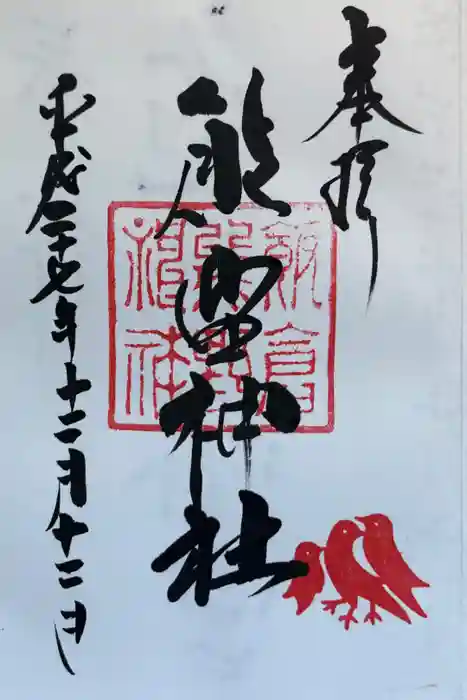 奉拝
熊野神社
平成二十七年十二月十二日
飯倉
熊野
神社